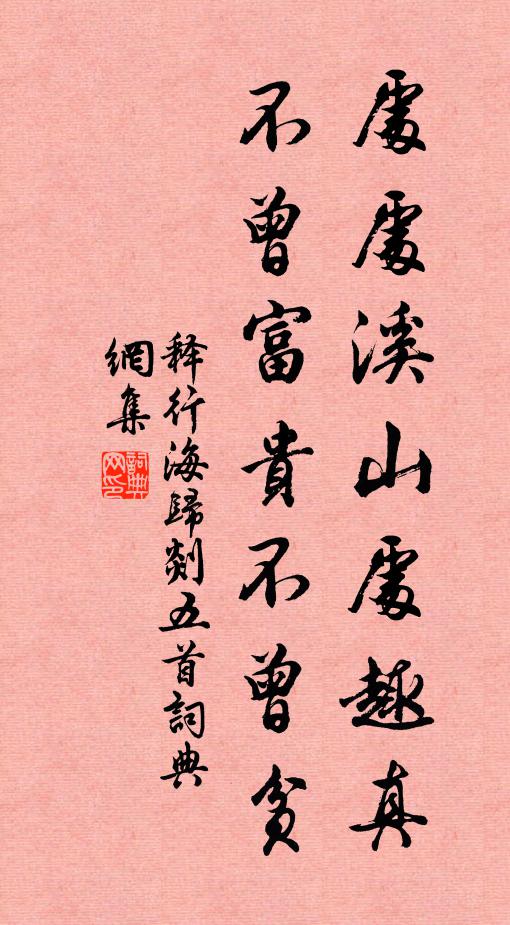 處處溪山處趣真
不曾富貴不曾貧
释行海歸剡五首詞典
網集
詞典
网印